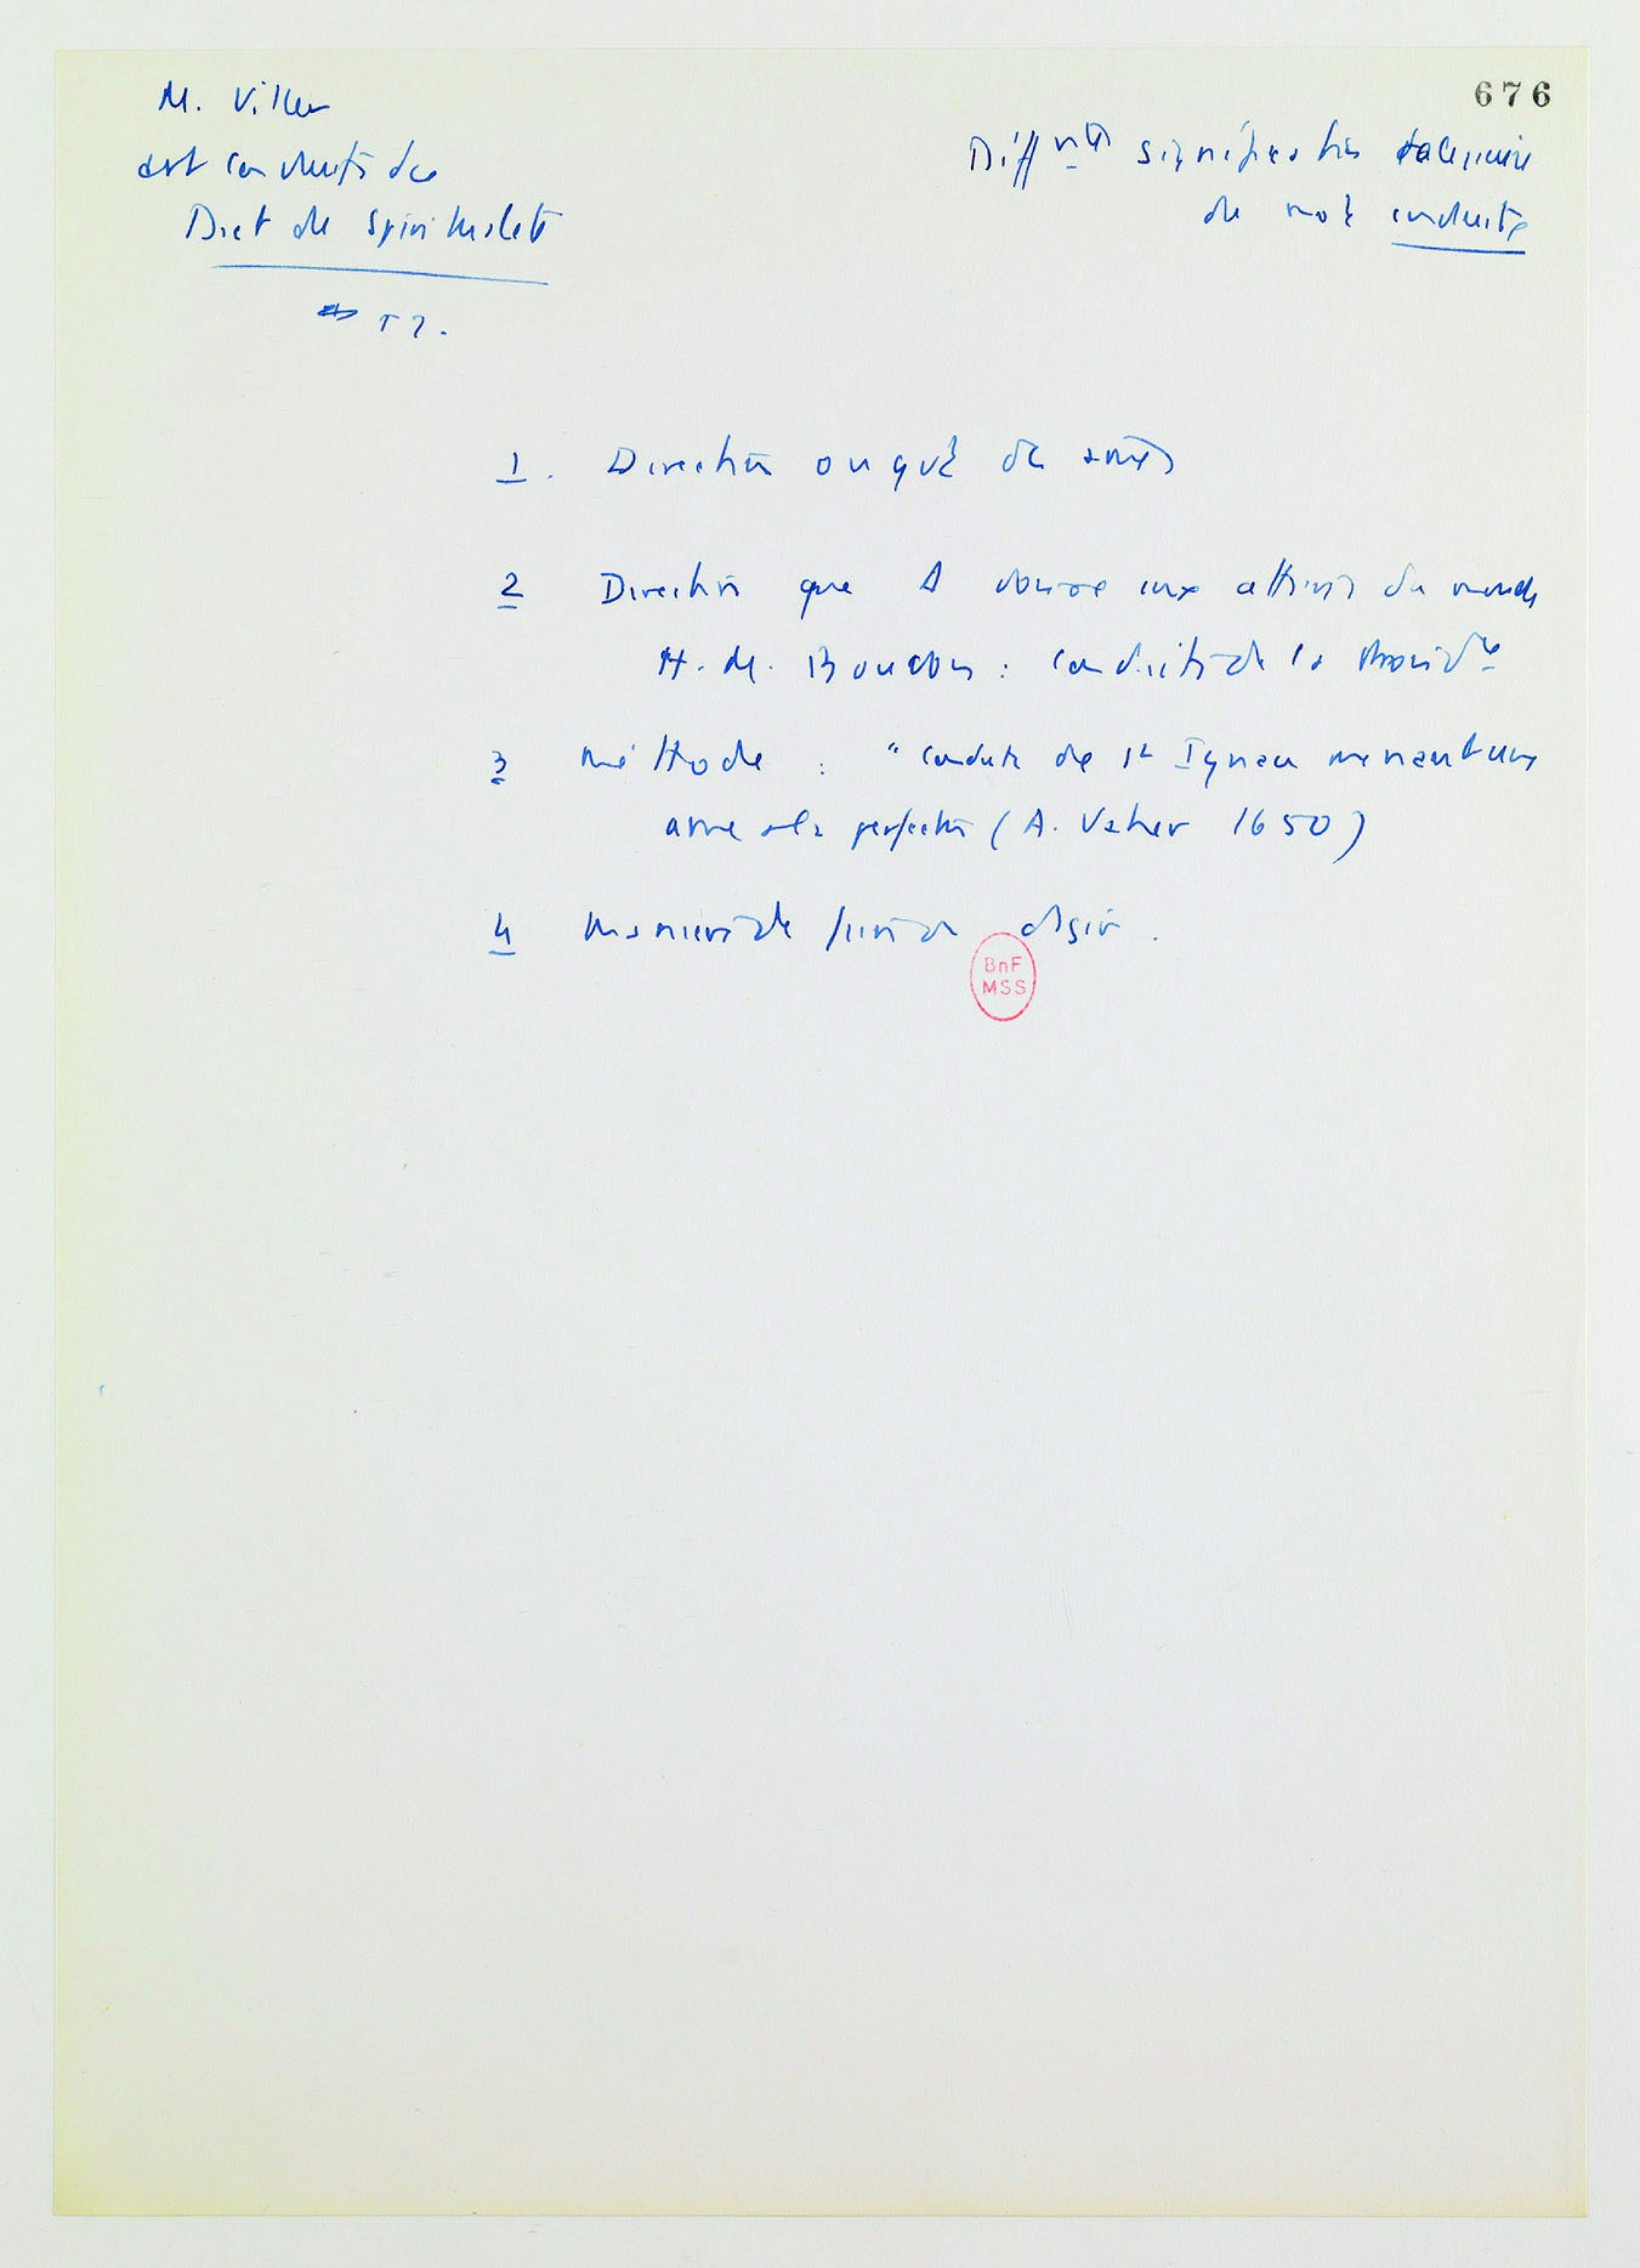 676
M. Viller
art conduite du
Dict de spiritualité
T 2.
Diff significations
du mot conduite
1. Direction ou gvt des âmes
2 Direction que donne aux affaires du monde
H. M. Boudon : conduite de la
3 Méthode : "conduite de St Ignace menant une
ame a la perfection (A. Vatier 1650)
4 Manière de d'agir.
BnF
MSS